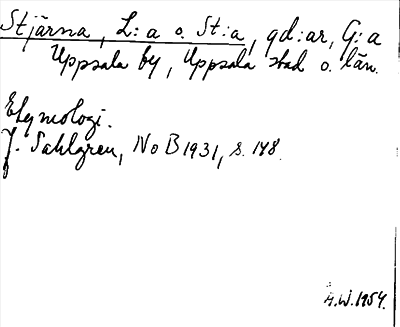 Stjärna, L:a o. St:a, gd:ar, G:a
Uppsala by, Uppsala stad o. län.
Etymologi.
J. Sahlgren, NoB 1931, s. 148.
A.W. 1954.